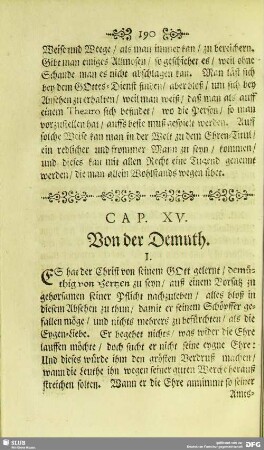 190
Weise und Wege / als man immer kan / zu bereichern.
Gibt man einiges Allmosen / so geschiehet es / weil ohne
Schande man es nicht abschlagen kan. Man läst sich
bey dem GOttes-Dienst finden / aber bloß / um sich bey
Ansehen zu erhalten / weil man weiß / daß man als auff
einem Theatro sich befindet / wo die Person / so man
vorzustellen hat / auffs beste muß gespielt werden. Auf
solche Weise kan man in der Welt zu dem Ehren-Titul /
ein redlicher und frommer Mann zu seyn / kommen /
und dieses kan mit allen Recht eine Tugend genennt
werden / die man allein Wohlstands wegen übet.
CAP. XV.
Von der Demuth.
I.
ES hat der Christ von seinem GOtt gelernt / demü-
thig von Hertzen zu seyn / auß einem Vorsatz zu
gehorsamen seiner Pflicht nachzuleben / alles bloß in
diesem Absehen zu thun / damit er seinem Schöpffer ge-
fallen möge / und nichts mehrers zu befürchten / als die
Eygen-Liebe. Er begehet nichts / was wider die Ehre
lauffen möchte / doch sucht er nicht seine eygne Ehre:
Und dieses würde ihm den grösten Verdruß machen /
wann die Leuthe ihn wegen seiner guten Wercke herauß
streichen solten. Wann er die Ehre annimmt so seiner
Amts-
SLUB
DFG